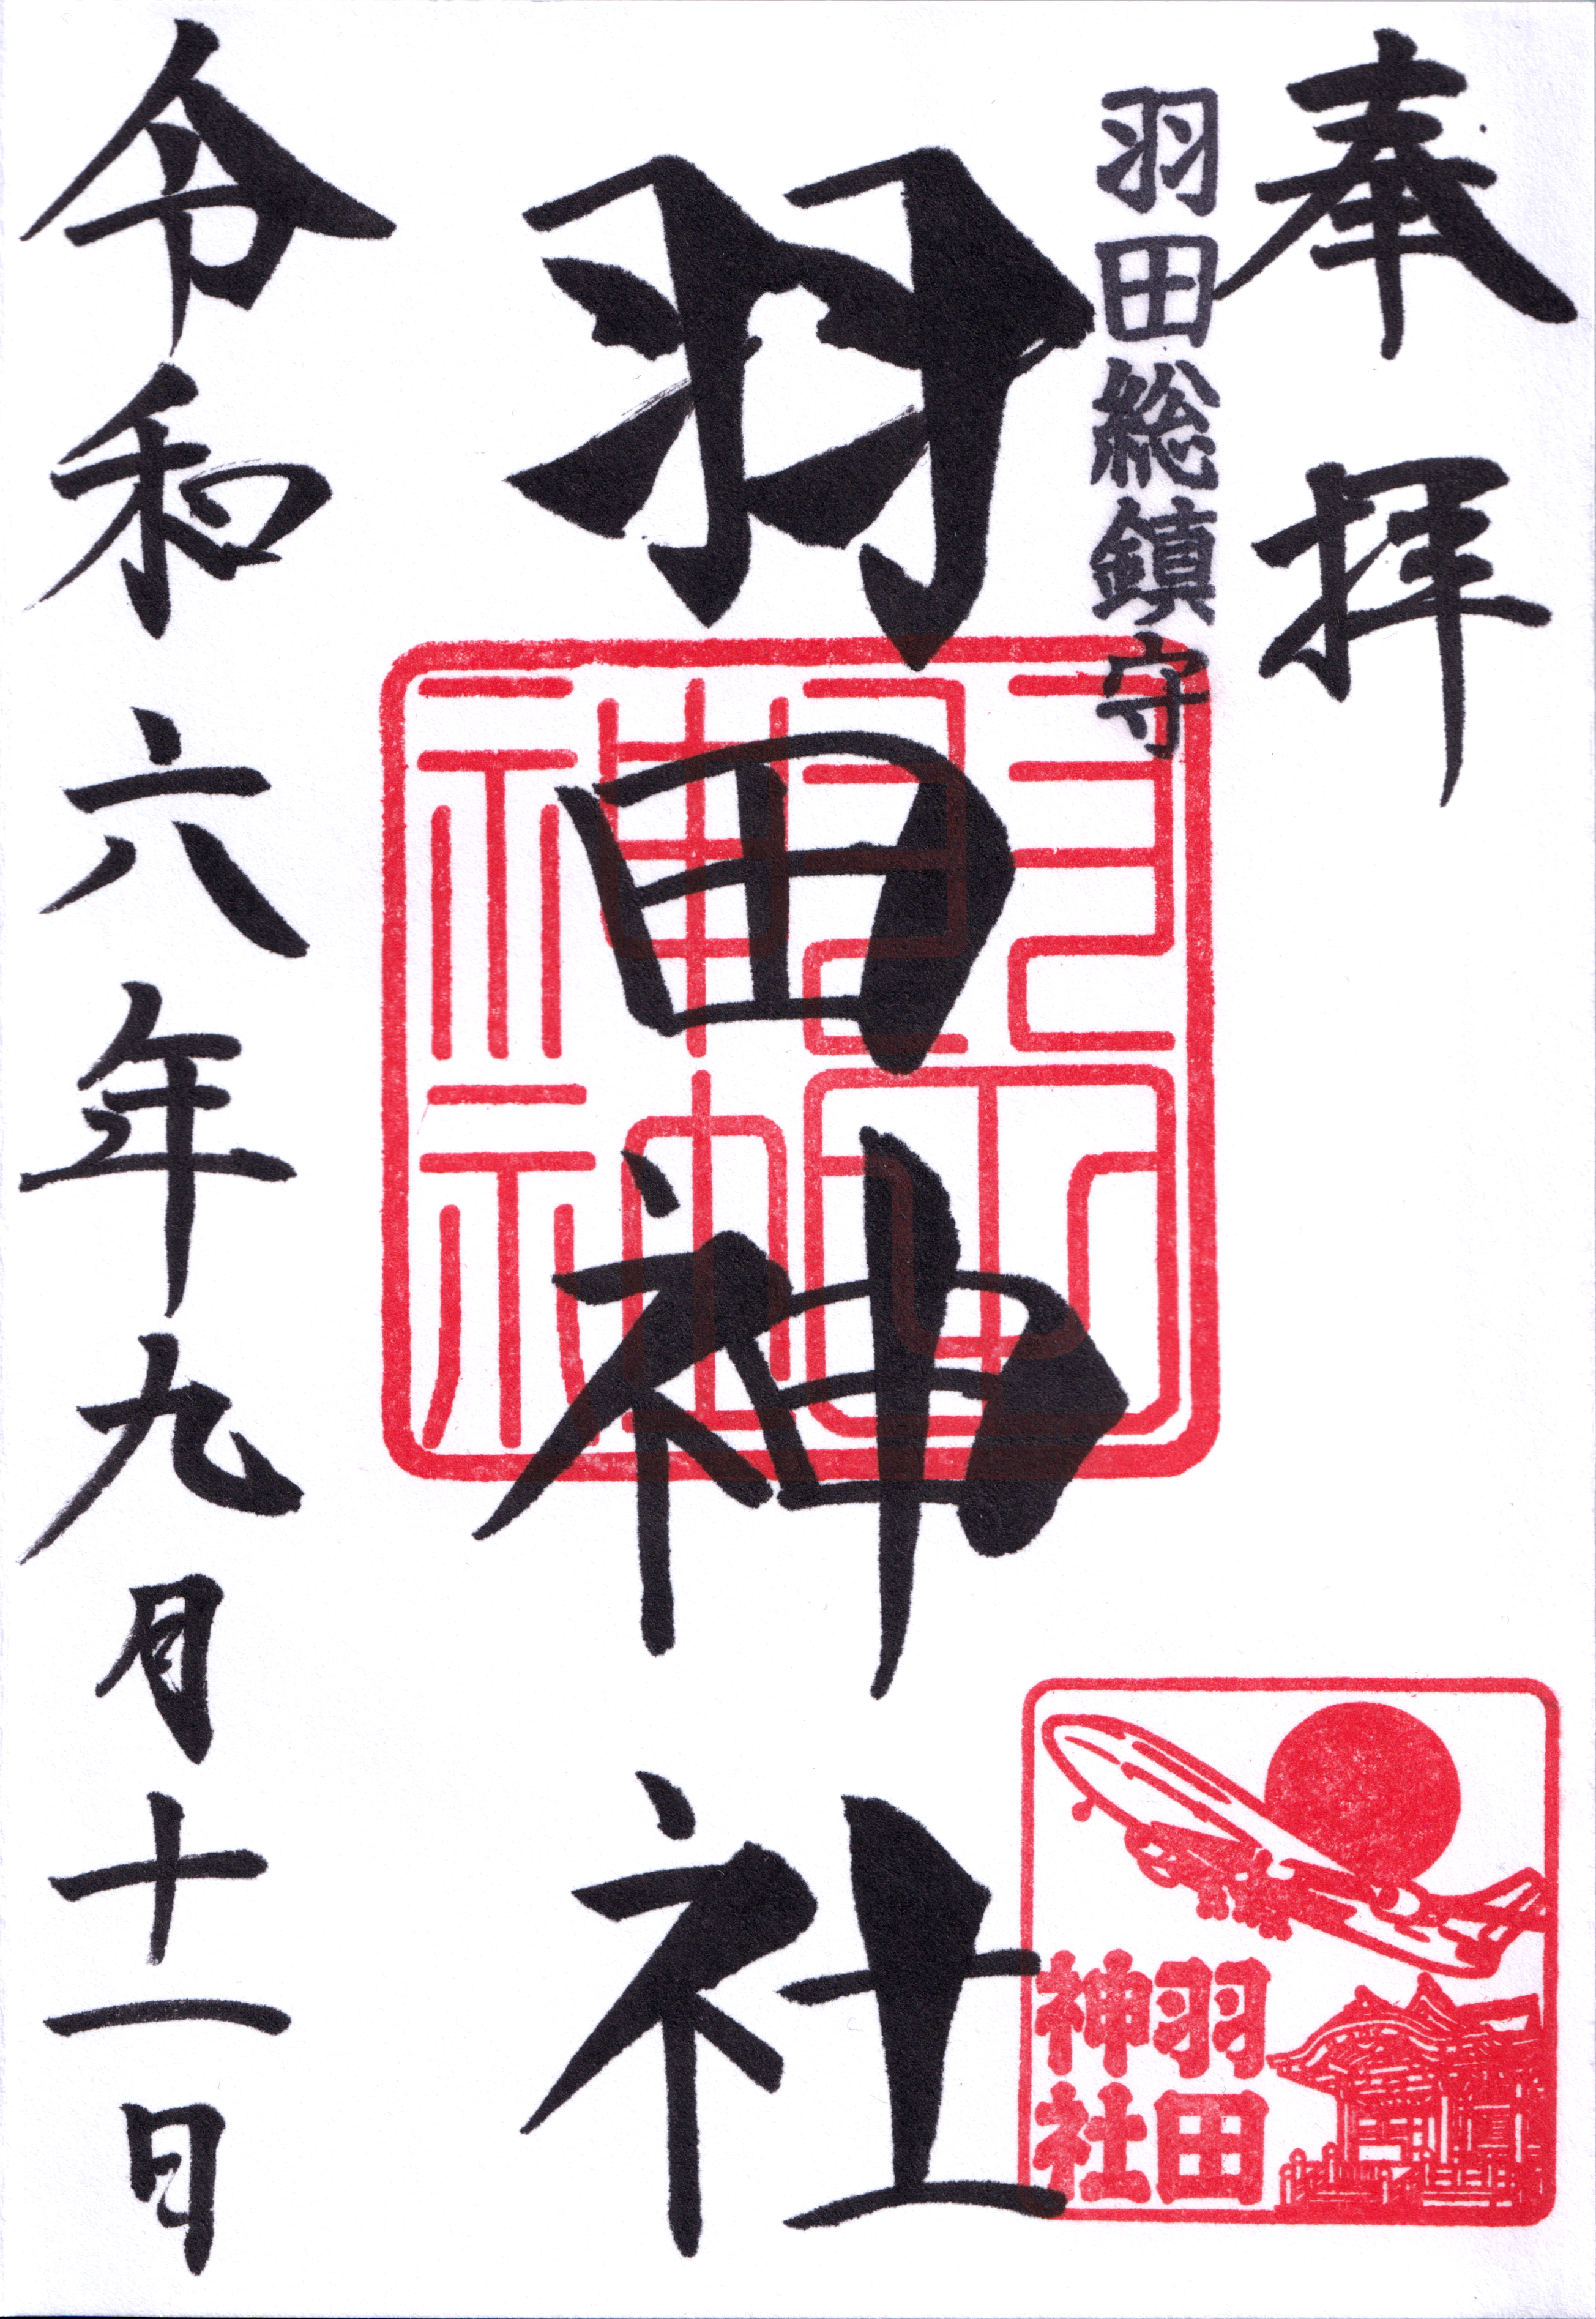 奉拝
羽田総鎮守
羽田神社
羽田神社
羽田
神社
令和六年九月十一日